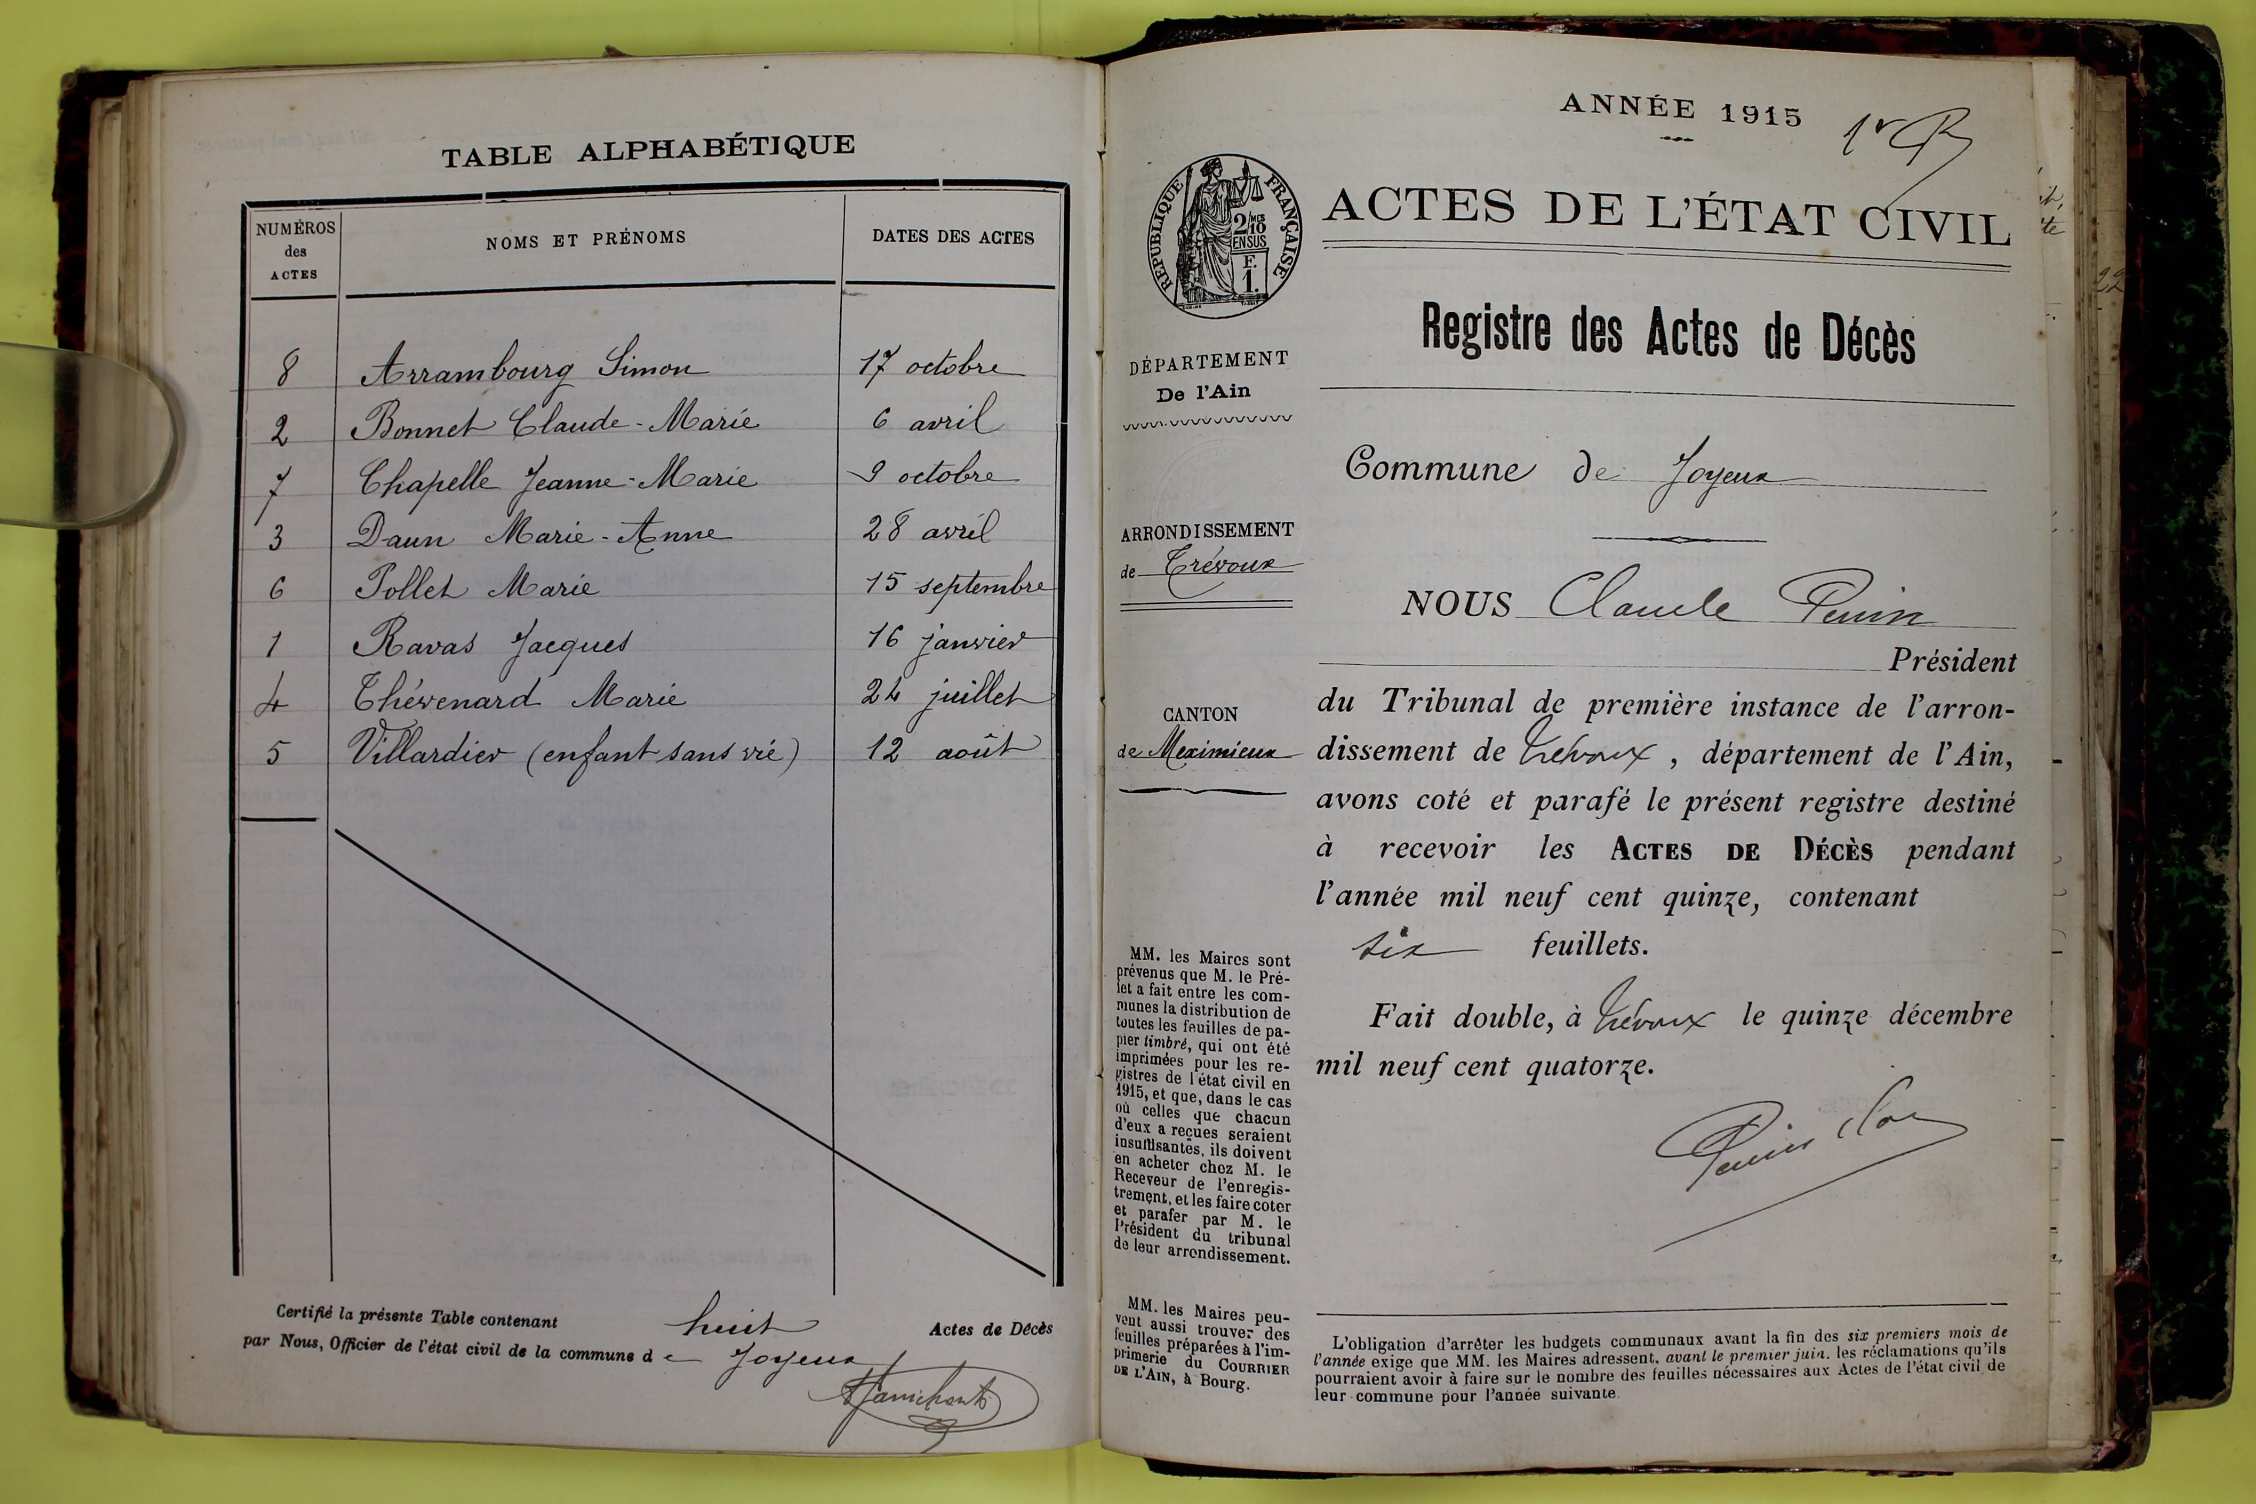 TABLE ALPHABÉTIQUE
NUMÉROS des ACTES NOMS ET PRÉNOMS DATES DES ACTES
8 Arrambourg Simon 17 octobre
2 Bonnet Claude-Marie 6 avril
7 Chapelle Jeanne-Marie 9 octobre
3 Daun Marie-Anne 28 avril
6 Pollet Marie 15 septembre
1 Ravas Jacques 16 janvier
4 Thévenard Marie 24 juillet
5 Villardier (enfant sans vie) 12 août
Certifié la présente Table contenant huit Actes de Décès
par Nous, Officier de l'état civil de la commune de Joyeux
ANNÉE 1915
1r
RÉPUBLIQUE FRANÇAISE
2/10 MES
EN SUS
F.
1.
DÉPARTEMENT
De l'Ain
ARRONDISSEMENT
de Trévoux
CANTON
de Meximieux
MM. les Maires sont
prévenus que M. le Pré-
fet a fait entre les com-
munes la distribution de
toutes les feuilles de pa-
pier timbré, qui ont été
imprimées pour les re-
gistres de l'état civil en
1915, et que, dans le cas
où celles que chacun
d'eux a reçues seraient
insuffisantes, ils doivent
en acheter chez M. le
Receveur de l'enregis-
trement, et les faire coter
et parafer par M. le
Président du tribunal
de leur arrondissement.
MM. les Maires peu-
vent aussi trouver des
feuilles préparées à l'im-
primerie du COURRIER
DE L'AIN, à Bourg.
ACTES DE L'ÉTAT CIVIL
Registre des Actes de Décès
Commune de Joyeux
NOUS Claude
Président
du Tribunal de première instance de l'arron-
dissement de Trévoux, département de l'Ain,
avons coté et parafé le présent registre destiné
à recevoir les ACTES DE DÉCÈS pendant
l'année mil neuf cent quinze, contenant
six feuillets.
Fait double, à Trévoux le quinze décembre
mil neuf cent quatorze.
L'obligation d'arrêter les budgets communaux avant la fin des six premiers mois de
l'année exige que MM. les Maires adressent, avant le premier juin, les réclamations qu'ils
pourraient avoir à faire sur le nombre des feuilles nécessaires aux Actes de l'état civil de
leur commune pour l'année suivante.